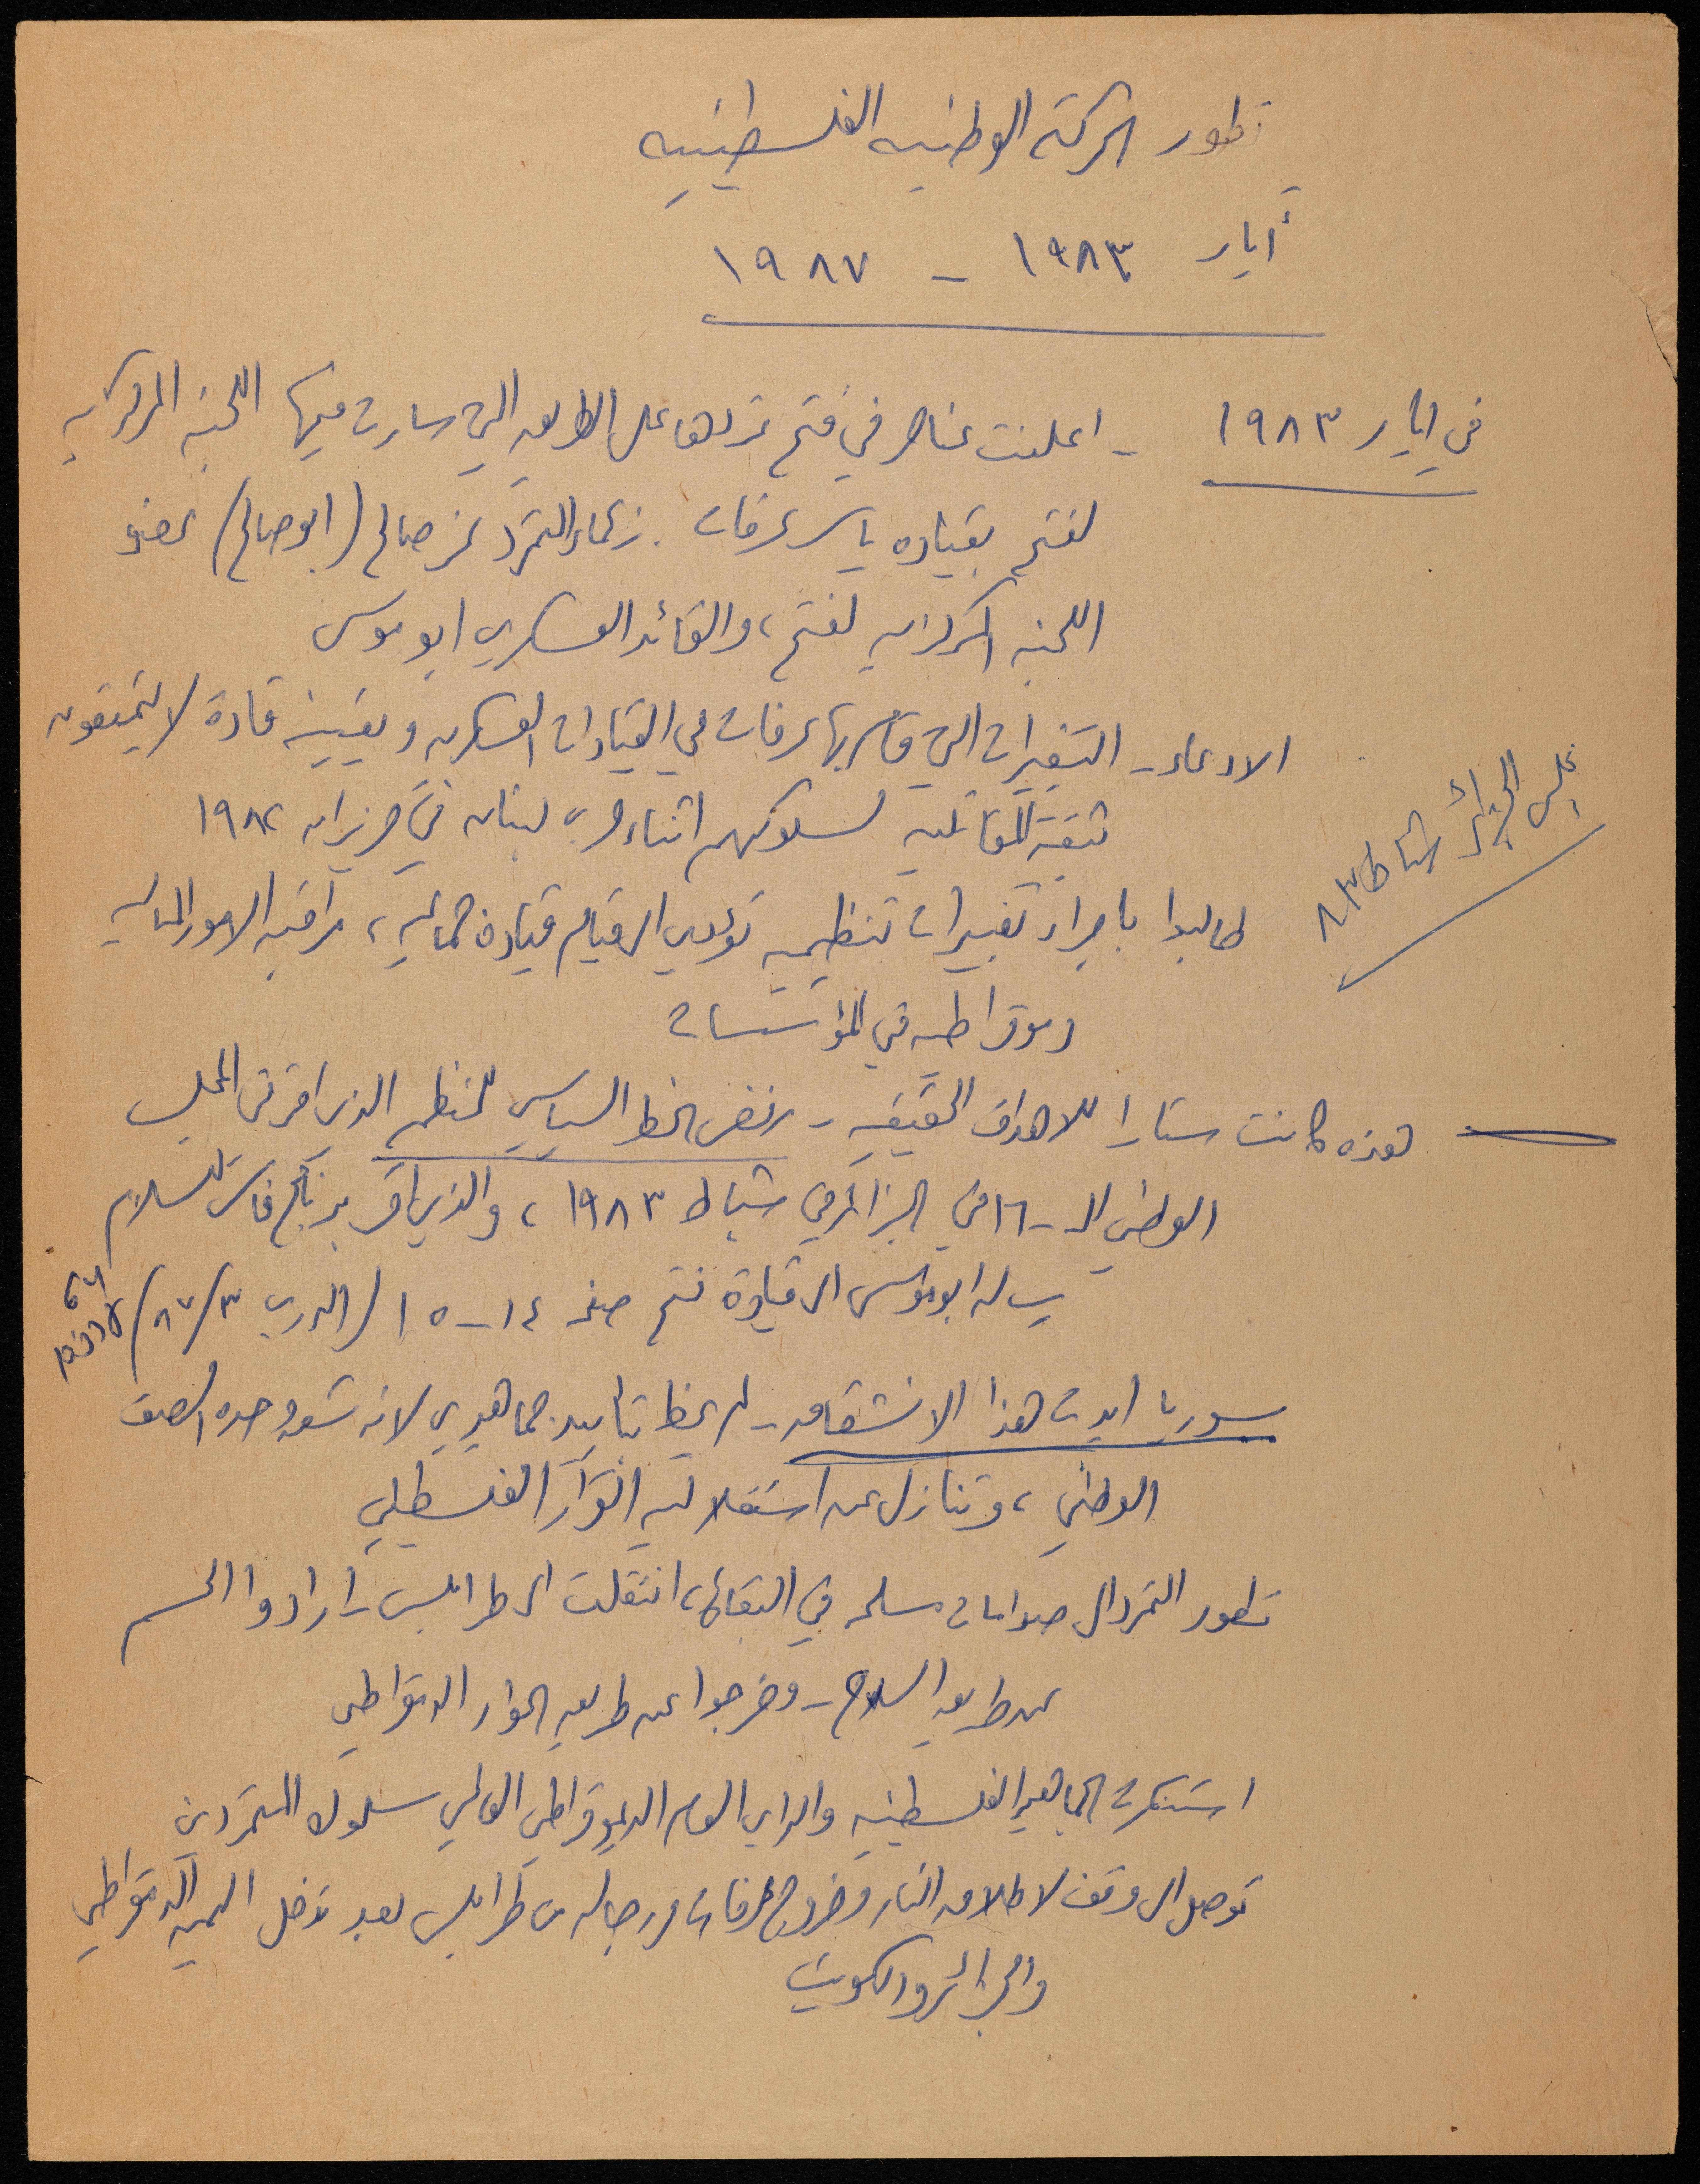 تطور الحركة الوطنيه الفلسطينيه
أيار ١٩٨٣ - ١٩٨٧
في ايار ١٩٨٣ - اعلنت عناصر في فتح تمردها على الطريق التي سارت فيها اللجنه المركزيه
لفتح بقياده ياسر عرفات. زعماء التمرد نمر صالح (ابو صالح) عضو
اللجنه المركزيه لفتح، والقائد العسكري ابو موسى
الادعاء - التغييرات التي قام بها عرفات في القيادات العسكريه وتعيين قادة لا يتمتعون
بثقة المقاتلين لسلوكهم اثناء حرب لبنان في حزيران ١٩٨٢
مجلس الجزائر شباط ٨٣
طالبوا باجراء تغييرات تنظيميه تؤدي الى قيام قيادة جماعيه، مراقبه الامور الماليه
دموقراطيه في المؤسسات
هذه كانت ستارا للاهداف الحقيقيه - رفض الخط السياسي للمنظمه الذي اقر في المجلس
الوطني الـ - ١٦ في الجزائر في شباط ١٩٨٣، والذي اقر برنامج فاس للسلام
رساله ابو موسى الى قيادة فتح صفحه ١٤ - ١٥ / الدرب ٨٧/٣/
سوريا ايدت هذا الانشقاق - لم يحظ بتاييد جماهيري لانه شق وحده الصف
الوطني، وتنازل عن استقلاليه القرار الفلسطيني
تطور التمرد الى صدامات مسلحه في البقاع، انتقلت الى طرابلس - ارادوا الحسم
عن طريق السلاح - وخرجوا عن طريق الحوار الدمقراطي
استنكرت الجماهير الفلسطينيه والراي العام الديموقراطي العالمي سلوك المتمردين
توصل الى وقف لاطلاق النار وخروج عرفات ورجاله من طرابلس بعد تدخل اليمن الدمقراطي
والجزائر والكويت